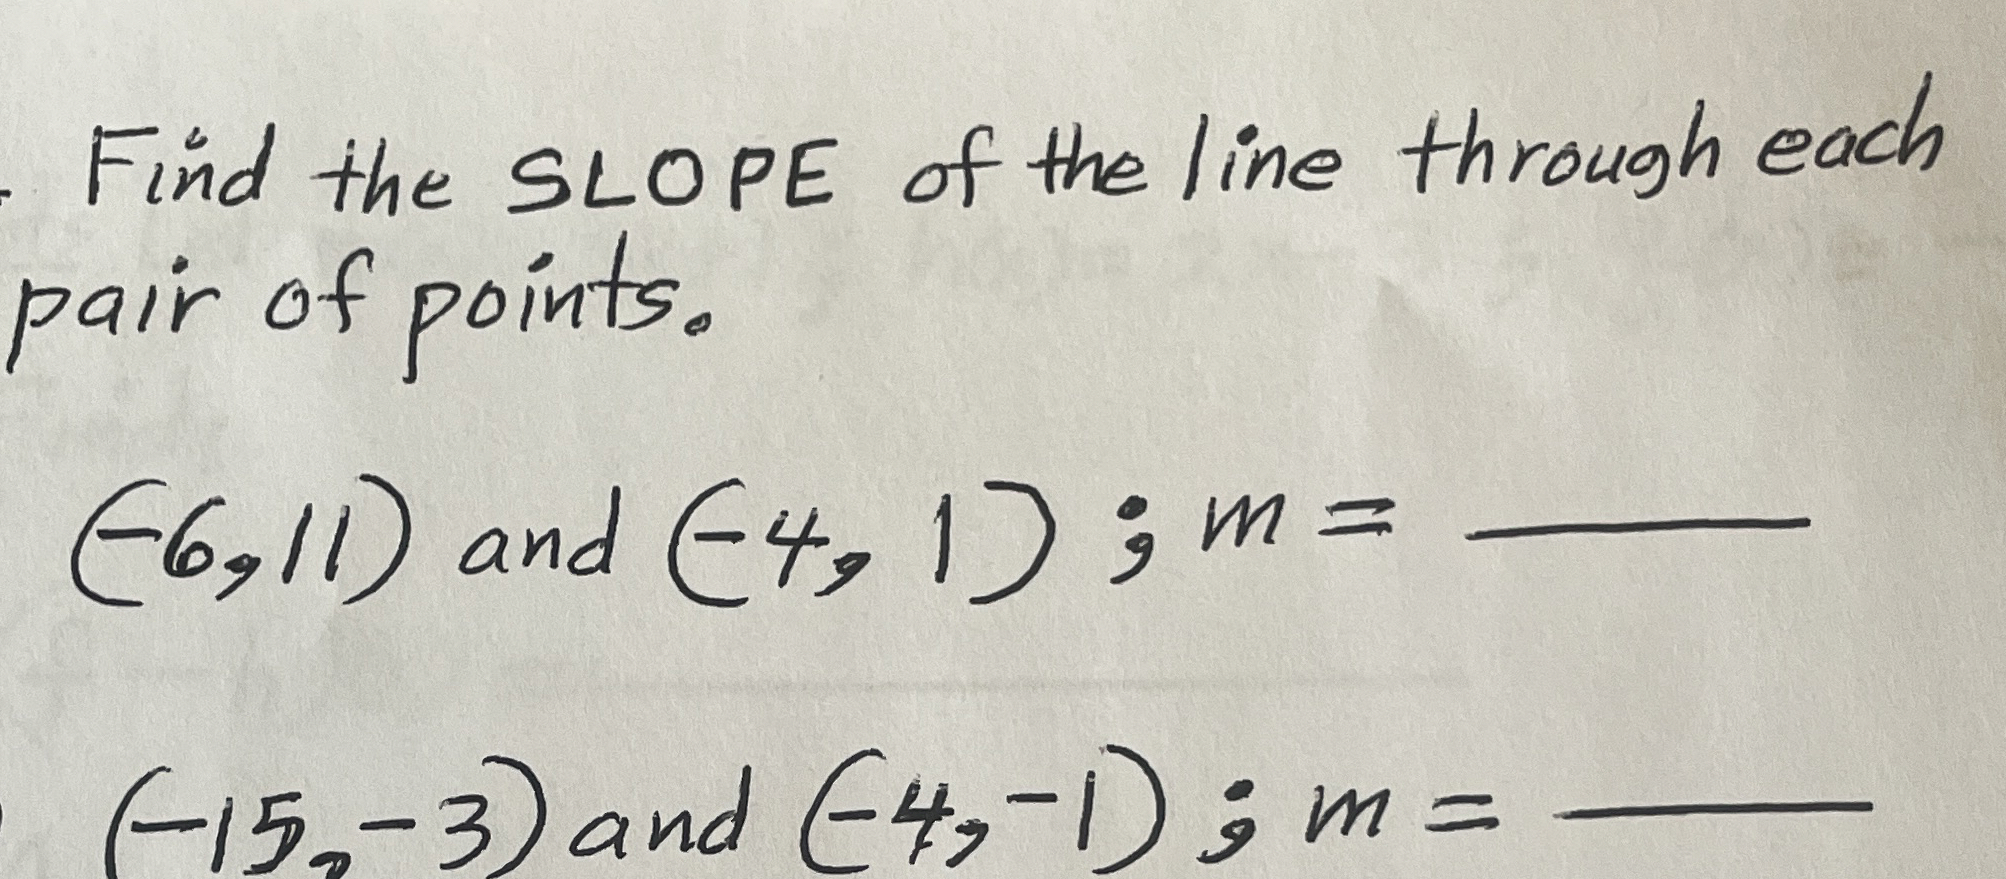 Find the SLOPE of the line through each
pair of points.
(-6,11) and (-4, 1) ; m = ____
(-15, -3) and (-4, -1) ; m = ____